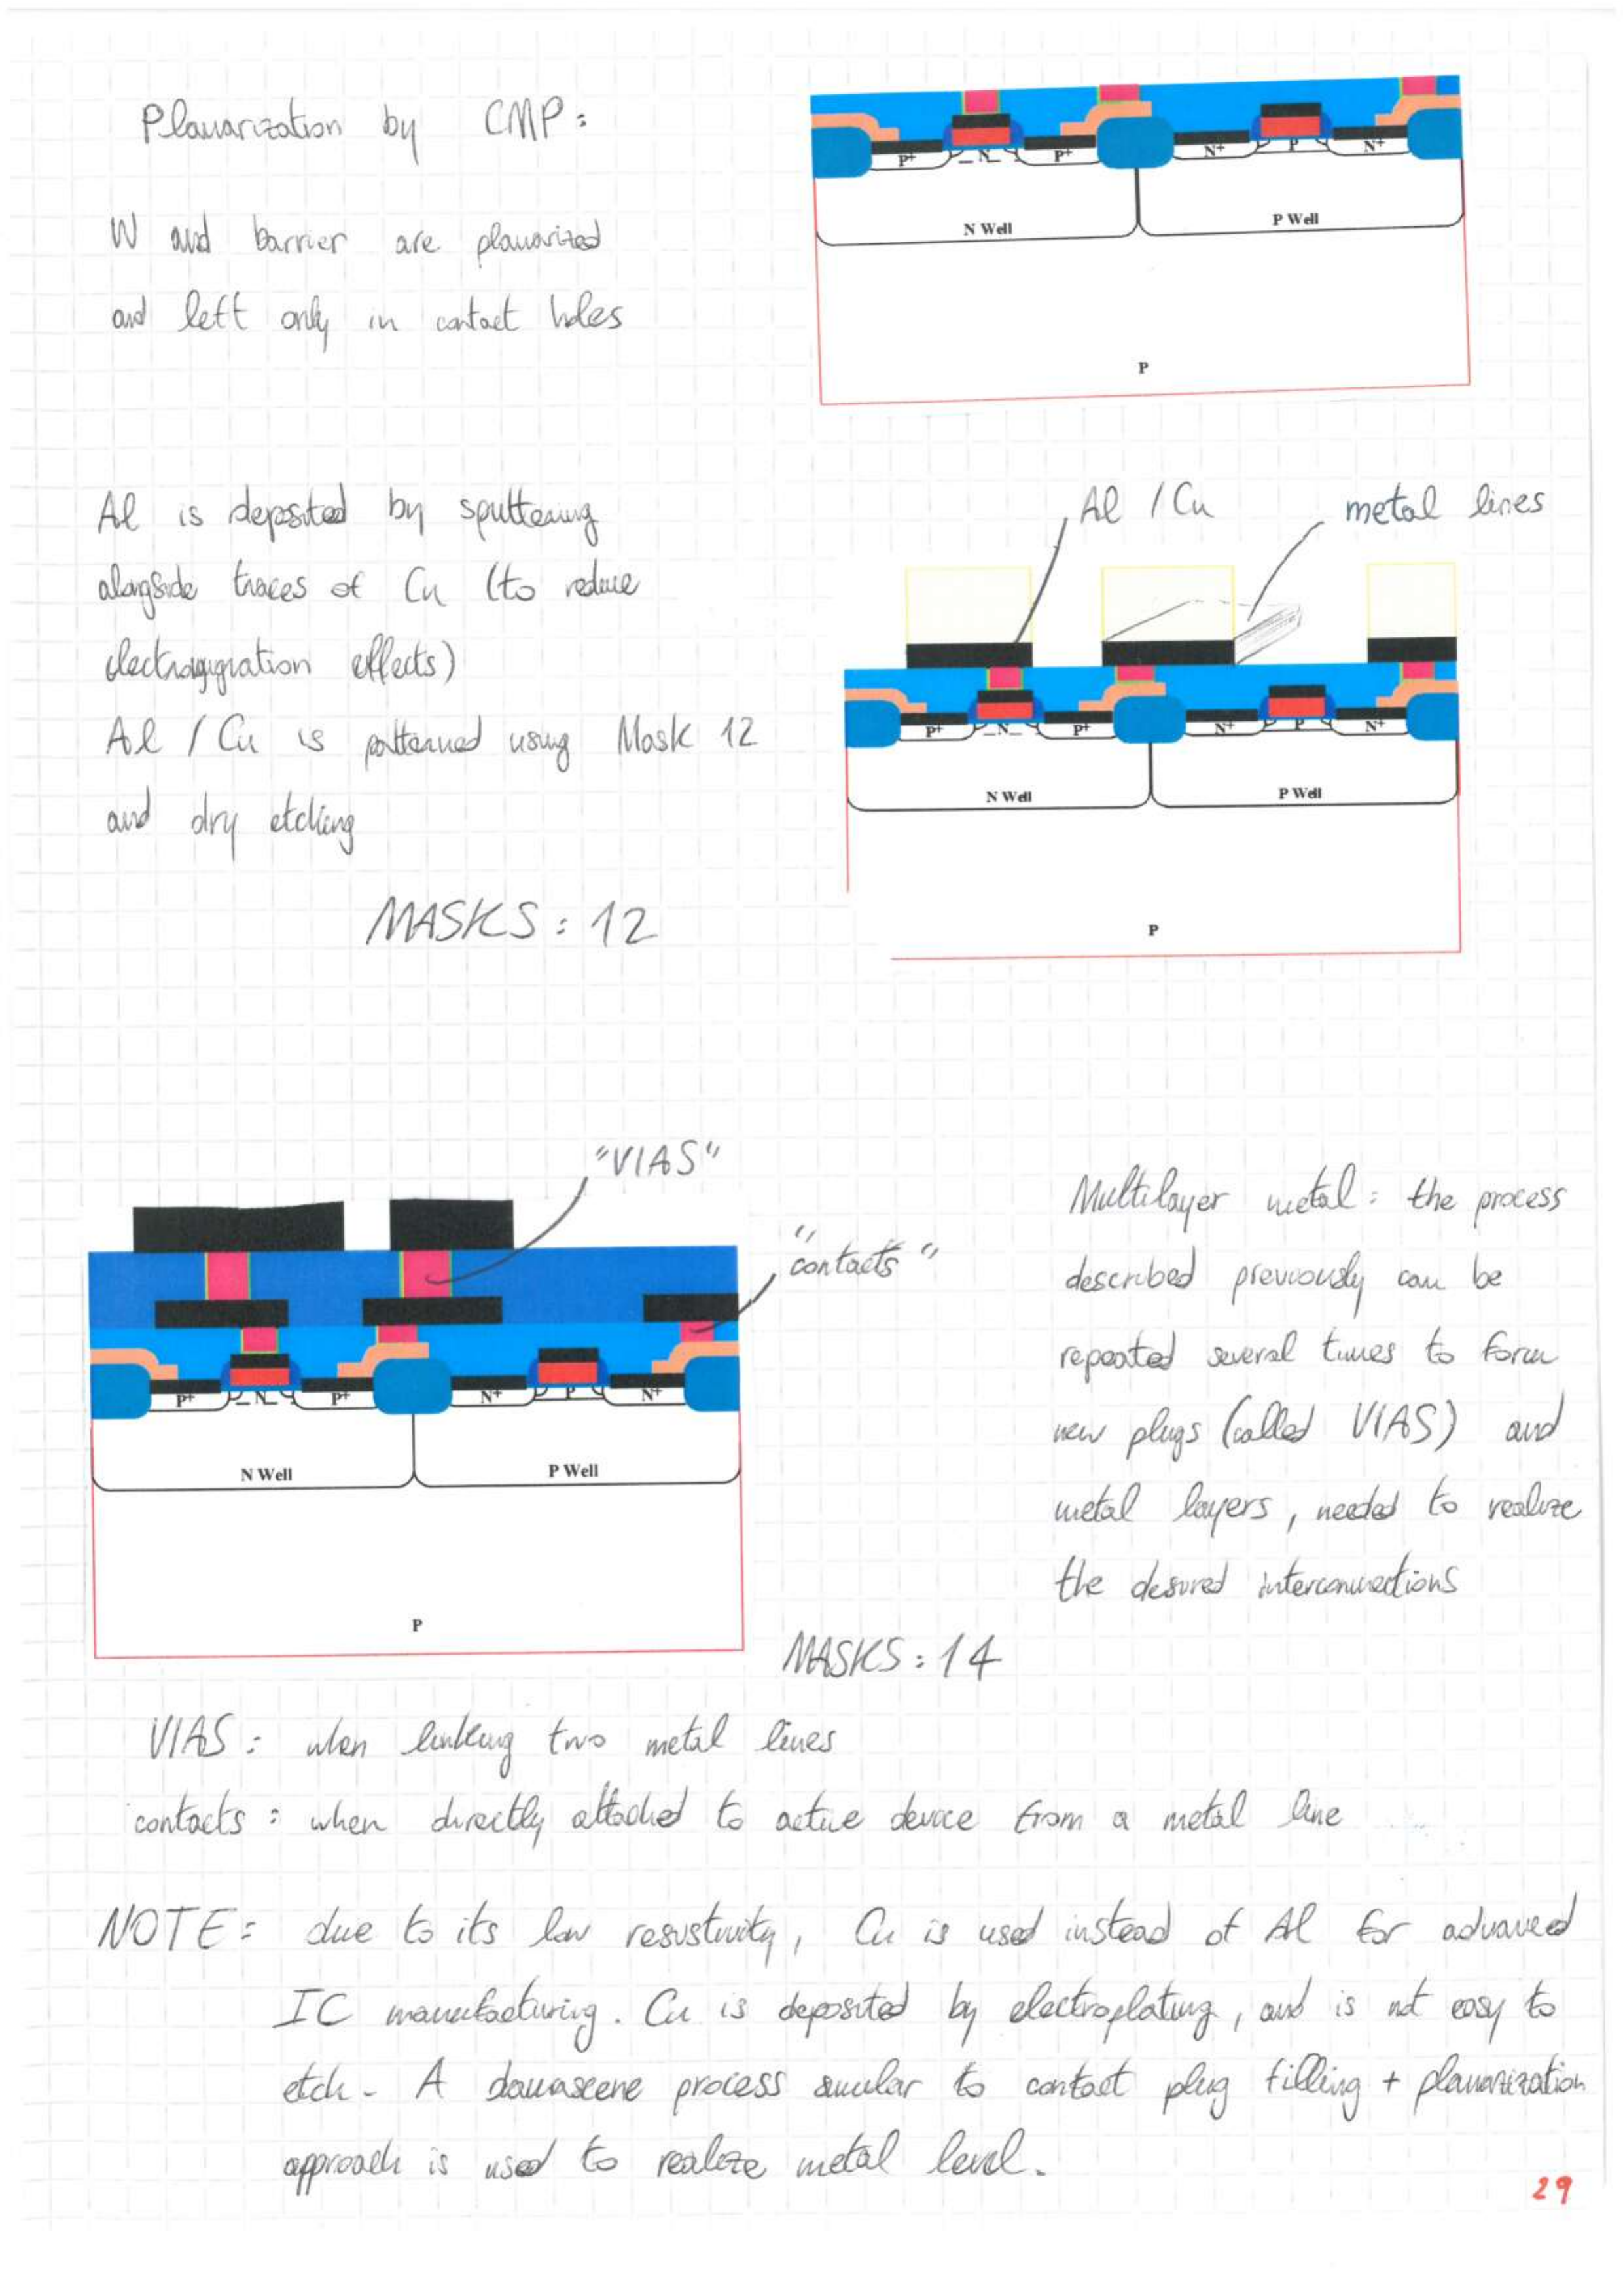 Planarization by CMP:
W and barrier are planarized
and left only in contact holes
P+ N P+ N+ P N+
N Well P Well
P
Al is deposited by sputtering
alongside traces of Cu (to reduce
electromigration effects)
Al / Cu is patterned using Mask 12
and dry etching
MASKS: 12
Al / Cu metal lines
P+ N P+ N+ P N+
N Well P Well
P
"VIAS"
"contacts"
P+ N P+ N+ P N+
N Well P Well
P
Multilayer metal: the process
described previously can be
repeated several times to form
new plugs (called VIAS) and
metal layers, needed to realize
the desired interconnections
MASKS: 14
VIAS: when linking two metal lines
contacts: when directly attached to active device from a metal line
NOTE: due to its low resistivity, Cu is used instead of Al for advanced
IC manufacturing. Cu is deposited by electroplating, and is not easy to
etch. A damascene process similar to contact plug filling + planarization
approach is used to realize metal level.
29